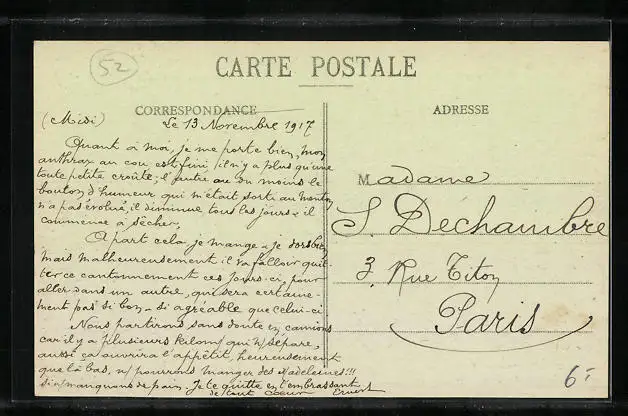 52
CARTE POSTALE
CORRESPONDANCE
ADRESSE
(Midi)
Le 13 Novembre 1917
Quant à moi, je me porte bien, mon
anthrax au cou est fini, il n'y a plus qu'une
toute petite croûte; l'autre ou du moins le
bouton d'humeur qui n'était sorti au menton
n'a pas évolué, il diminue tous les jours & il
commence à sécher.
A part cela, je mange & je dors bien
mais malheureusement il va falloir quit-
ter ce cantonnement ces jours-ci, pour
aller dans un autre, qui sera certaine-
ment pas si bon & si agréable que celui-ci
Nous partirons sans doute en camions
car il y a plusieurs kilom/ qui n/ sépare,
aussi ça ouvrira l'appétit, heureusement
que là bas, n/ pourrons manger des Madeleines!!!
si n/ manquons de pain. Je te quitte en t'embrassant
de tout coeur Ernest
Madame
S. Dechambre
3, Rue Titon
Paris
6-